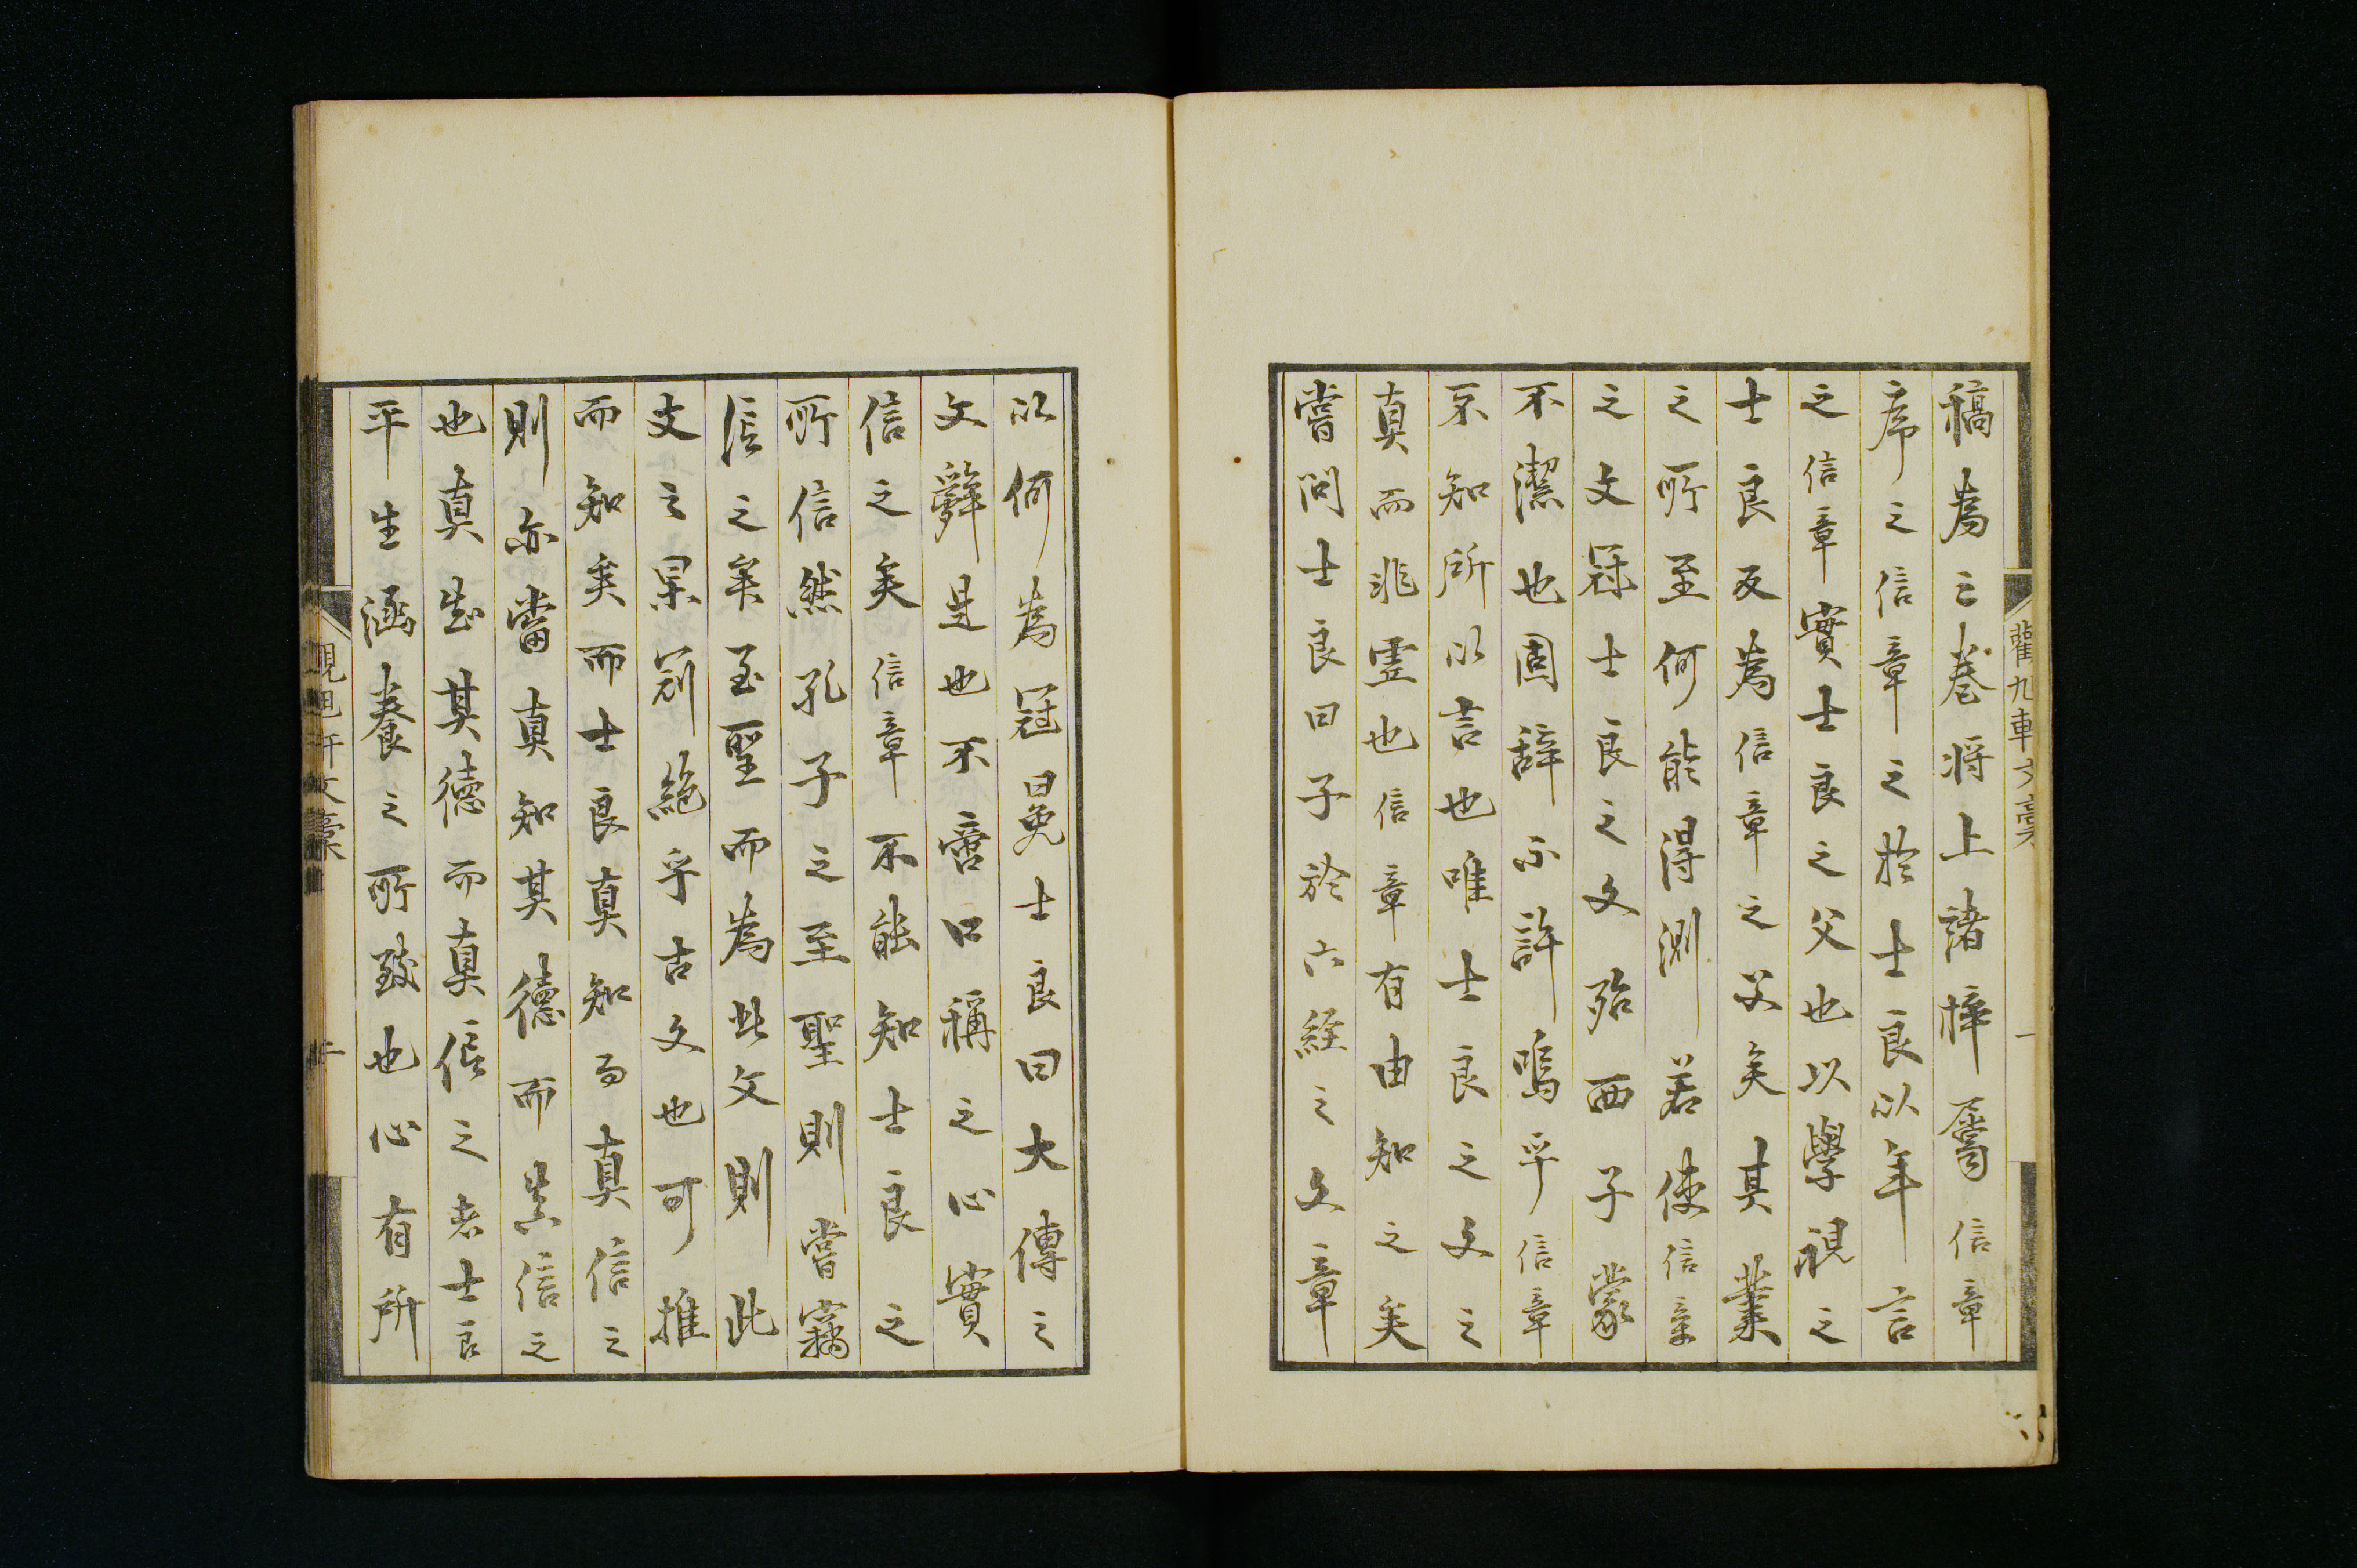 稿為二卷将上諸梓屬信章
序之信章之於士良以年言
之信章實士良之父也以學視之
士良反為信章之父矣其業
之所至何能得測若使信章
之文冠士良之文殆西子蒙
不潔也固辞不許嗚乎信章
不知所以言也唯士良之文之
真而非虛也信章有由知之矣
嘗問士良曰子於六経之文章
以何為冠冕士良曰大傳之
文辭是也不啻口稱之心實
信之矣信章不能知士良之
所信然孔子之至聖則嘗竊
信之矣至聖而為此文則此
文之冣冠絶乎古文也可推
而知矣而士良真知而真信之
則亦當真知其德而真信之
也真知其德而真信之者士良
平生涵養之所致也心有所